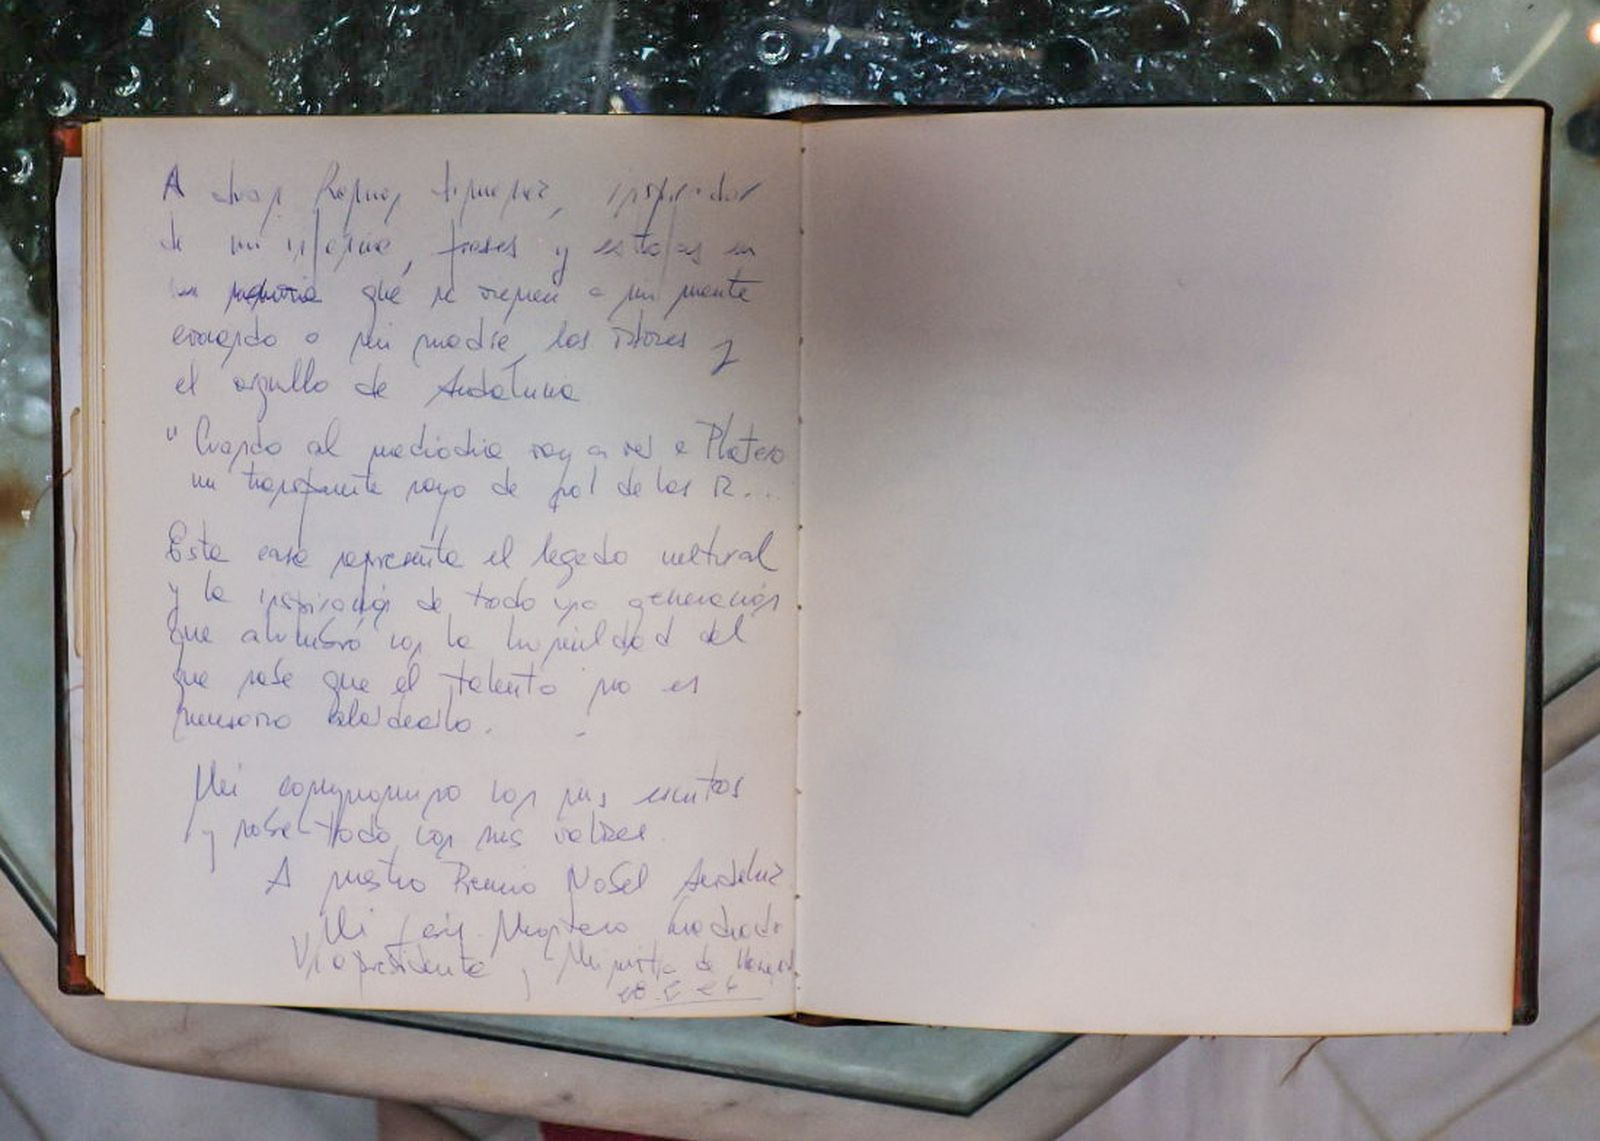 A Juan Ramón Jiménez, inspirador
de mi infancia, frases y estrofas en
la memoria que se vienen a mi mente
evocando a mi madre, los olores y
el orgullo de Andalucía
"Cuando al mediodía voy a ver a Platero
un transparente rayo de sol de las 12...
Esta casa representa el legado cultural
y la inspiración de toda una generación
que alumbró con la humildad del
que sabe que el talento no es
necesario blandearlo.
Mi compromiso con sus escritos
y sobre todo con sus valores.
A nuestro Premio Nobel Andaluz
Mª Jesús Montero Cuadrado
Vicepresidenta y Ministra de Hacienda